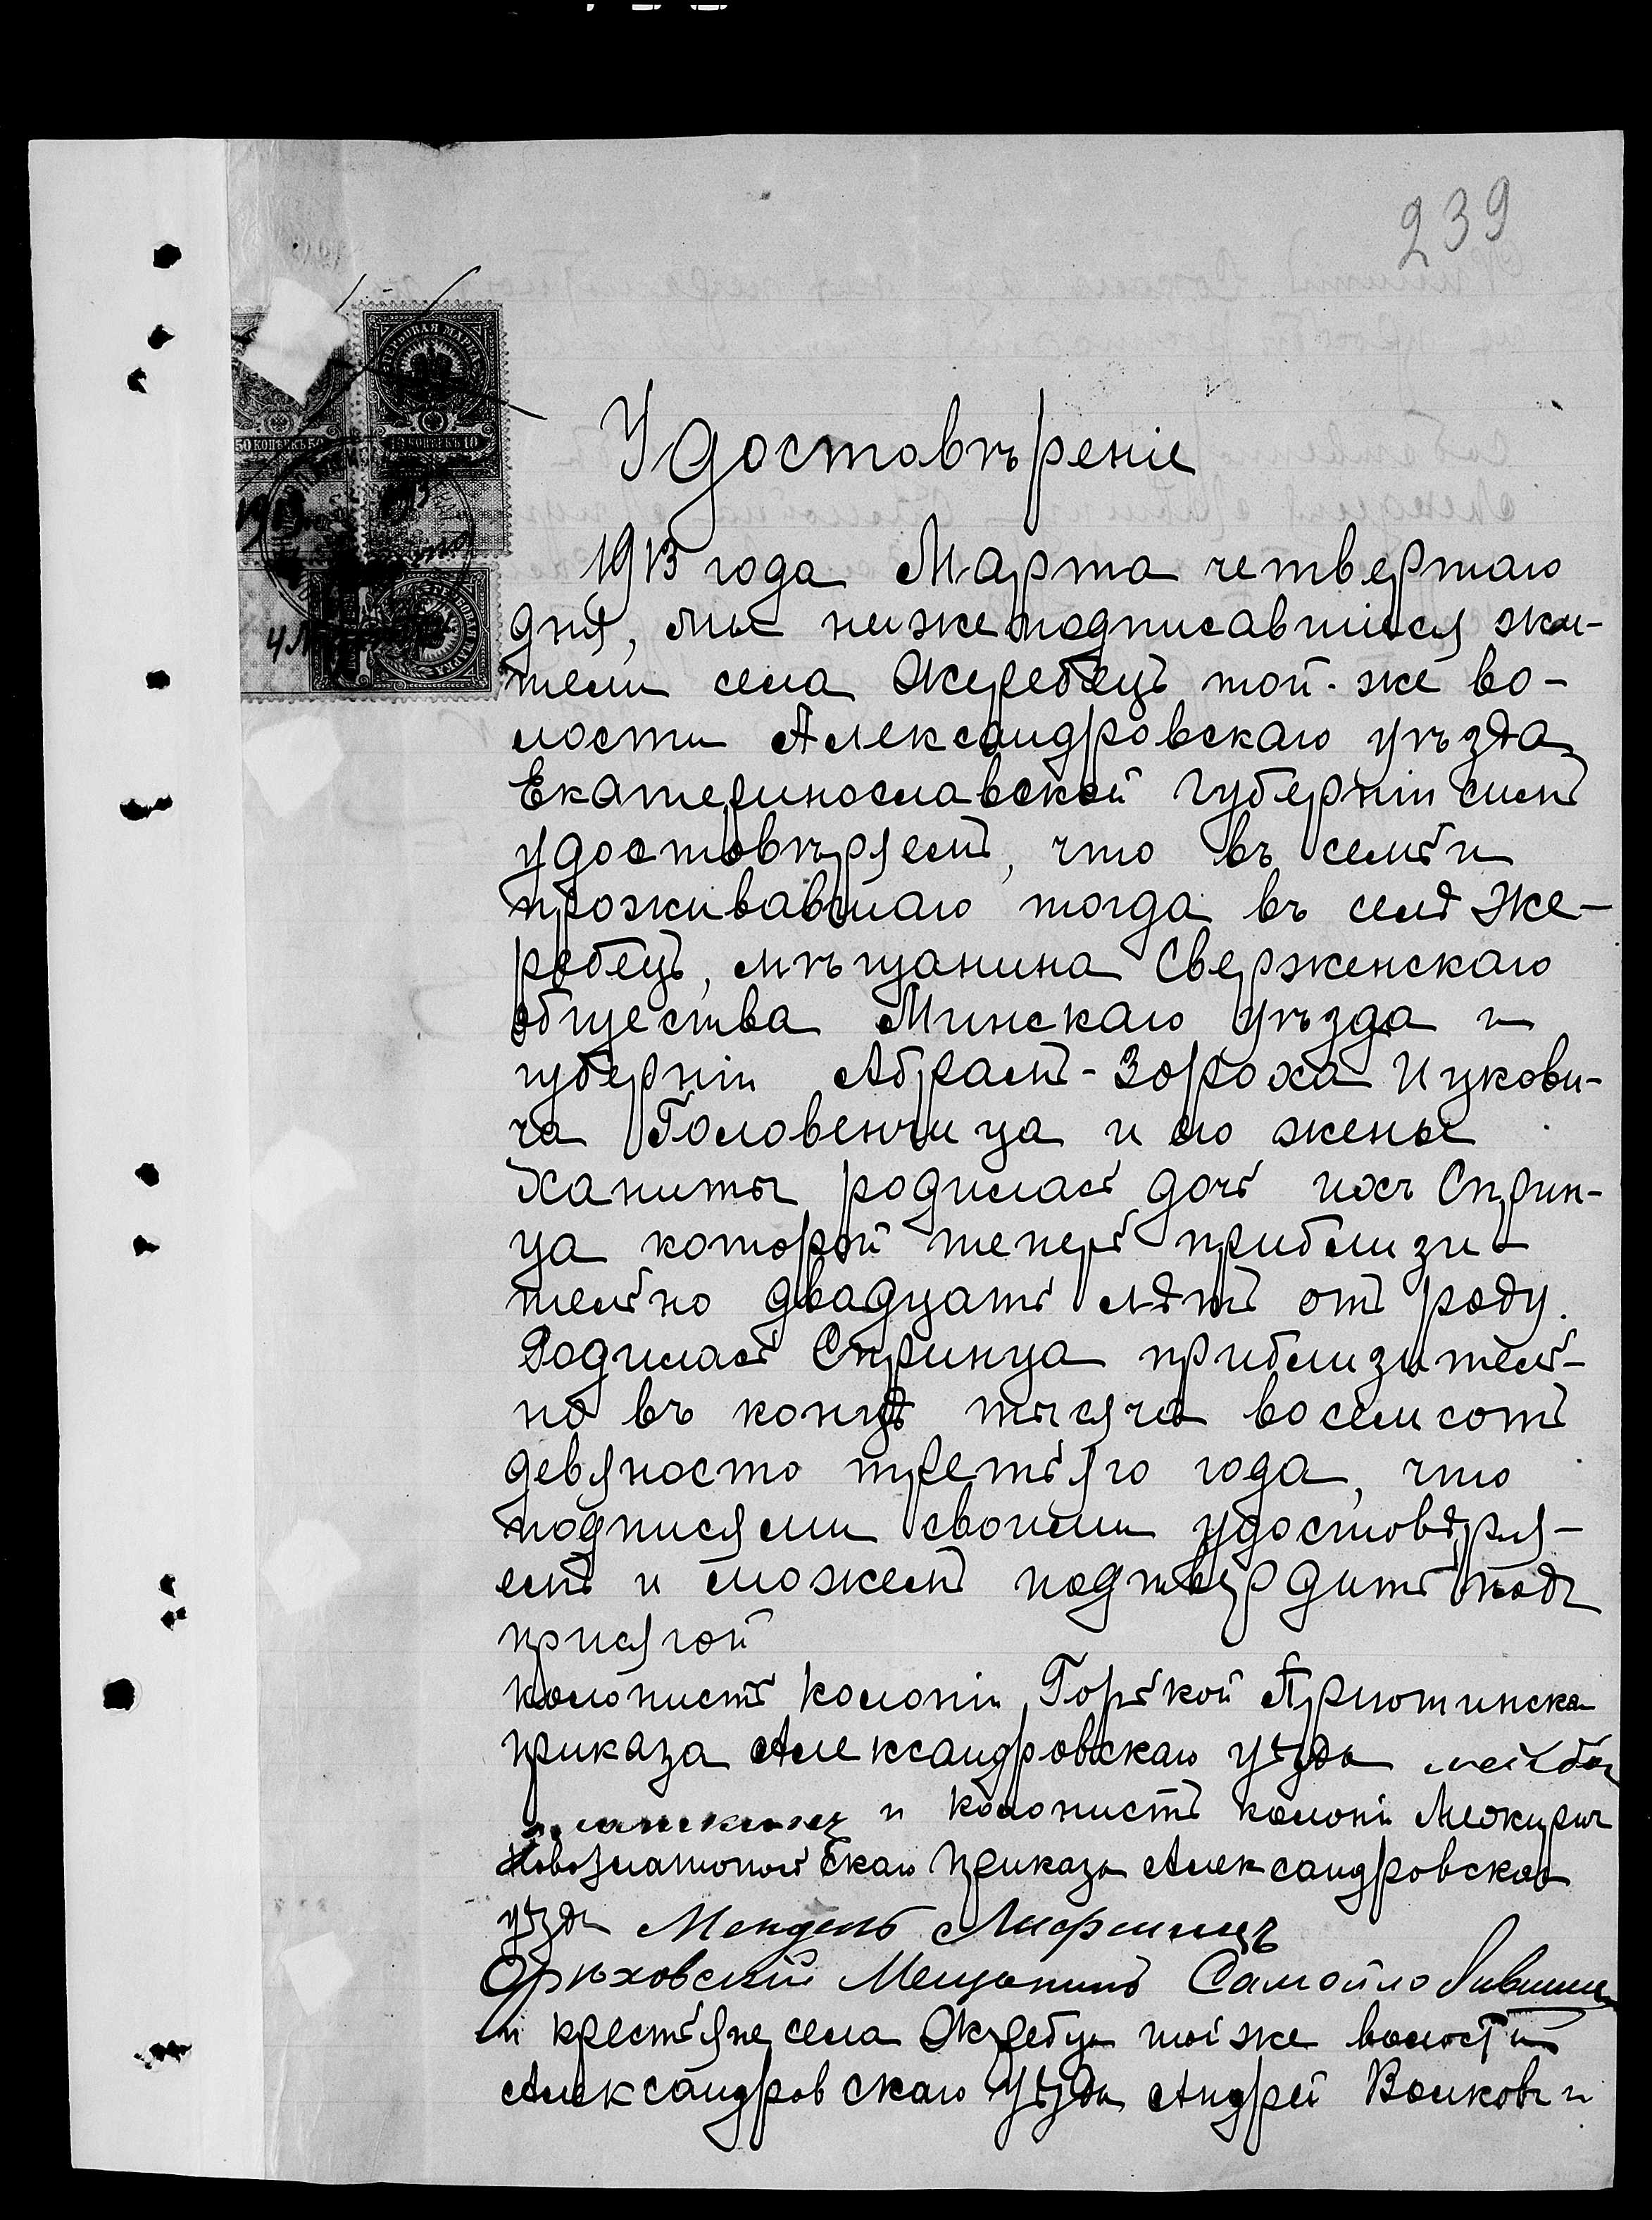 239
ГЕРБОВАЯ МАРКА
50 КОПѢЕКЪ 50
10 КОПѢЕКЪ 10
1913
1913
4 Марта
ГЕРБОВАЯ МАРКА
Удостовѣреніе
1913 года Марта четвертаго
дня, мы нижеподписавшіеся жи-
тели села Жеребецъ той-же во-
лости Александровскаго уѣзда
Екатеринославской губерніи симъ
удостовѣряемъ, что въ семьи
проживавшаго тогда въ селѣ Же-
ребецъ, мѣщанина Сверженскаго
общества Минскаго уѣзда и
губерніи Абрамъ-Зороха Ицкови-
ча Головенчица и его жены
Ханиты родилась дочь ихъ Сприн-
ца которой теперь приблизи-
тельно двадцать лѣтъ отъ роду.
Родилась Спринца приблизитель-
но въ концѣ тысяча восемсотъ
девяносто третьяго года, что
подписями своими удостовѣря-
емъ и можемъ подтвердить подъ
присягой
колонистъ колоніи Горькой Пріютинска
приказа Александровскаго уѣзда Лейба
и колонистъ колоніи Межиричъ
Новозлатопольскаго приказа Александровскаго
уѣзда Мендель Лифшицъ
Орѣховскій Мещанинъ Самойло
и крестьяне села Жеребца тойже волости
Александровскаго уѣзда Андрей Волковъ и